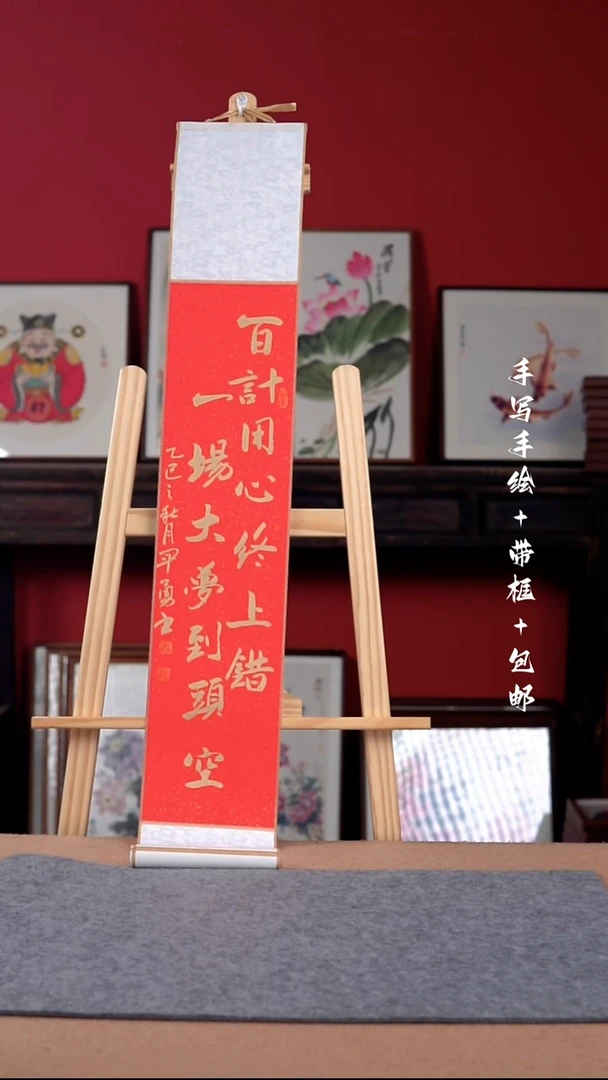 百計用心終上錯
一場大夢到頭空
乙巳之秋月罕勇书
手写手绘+带框+包邮